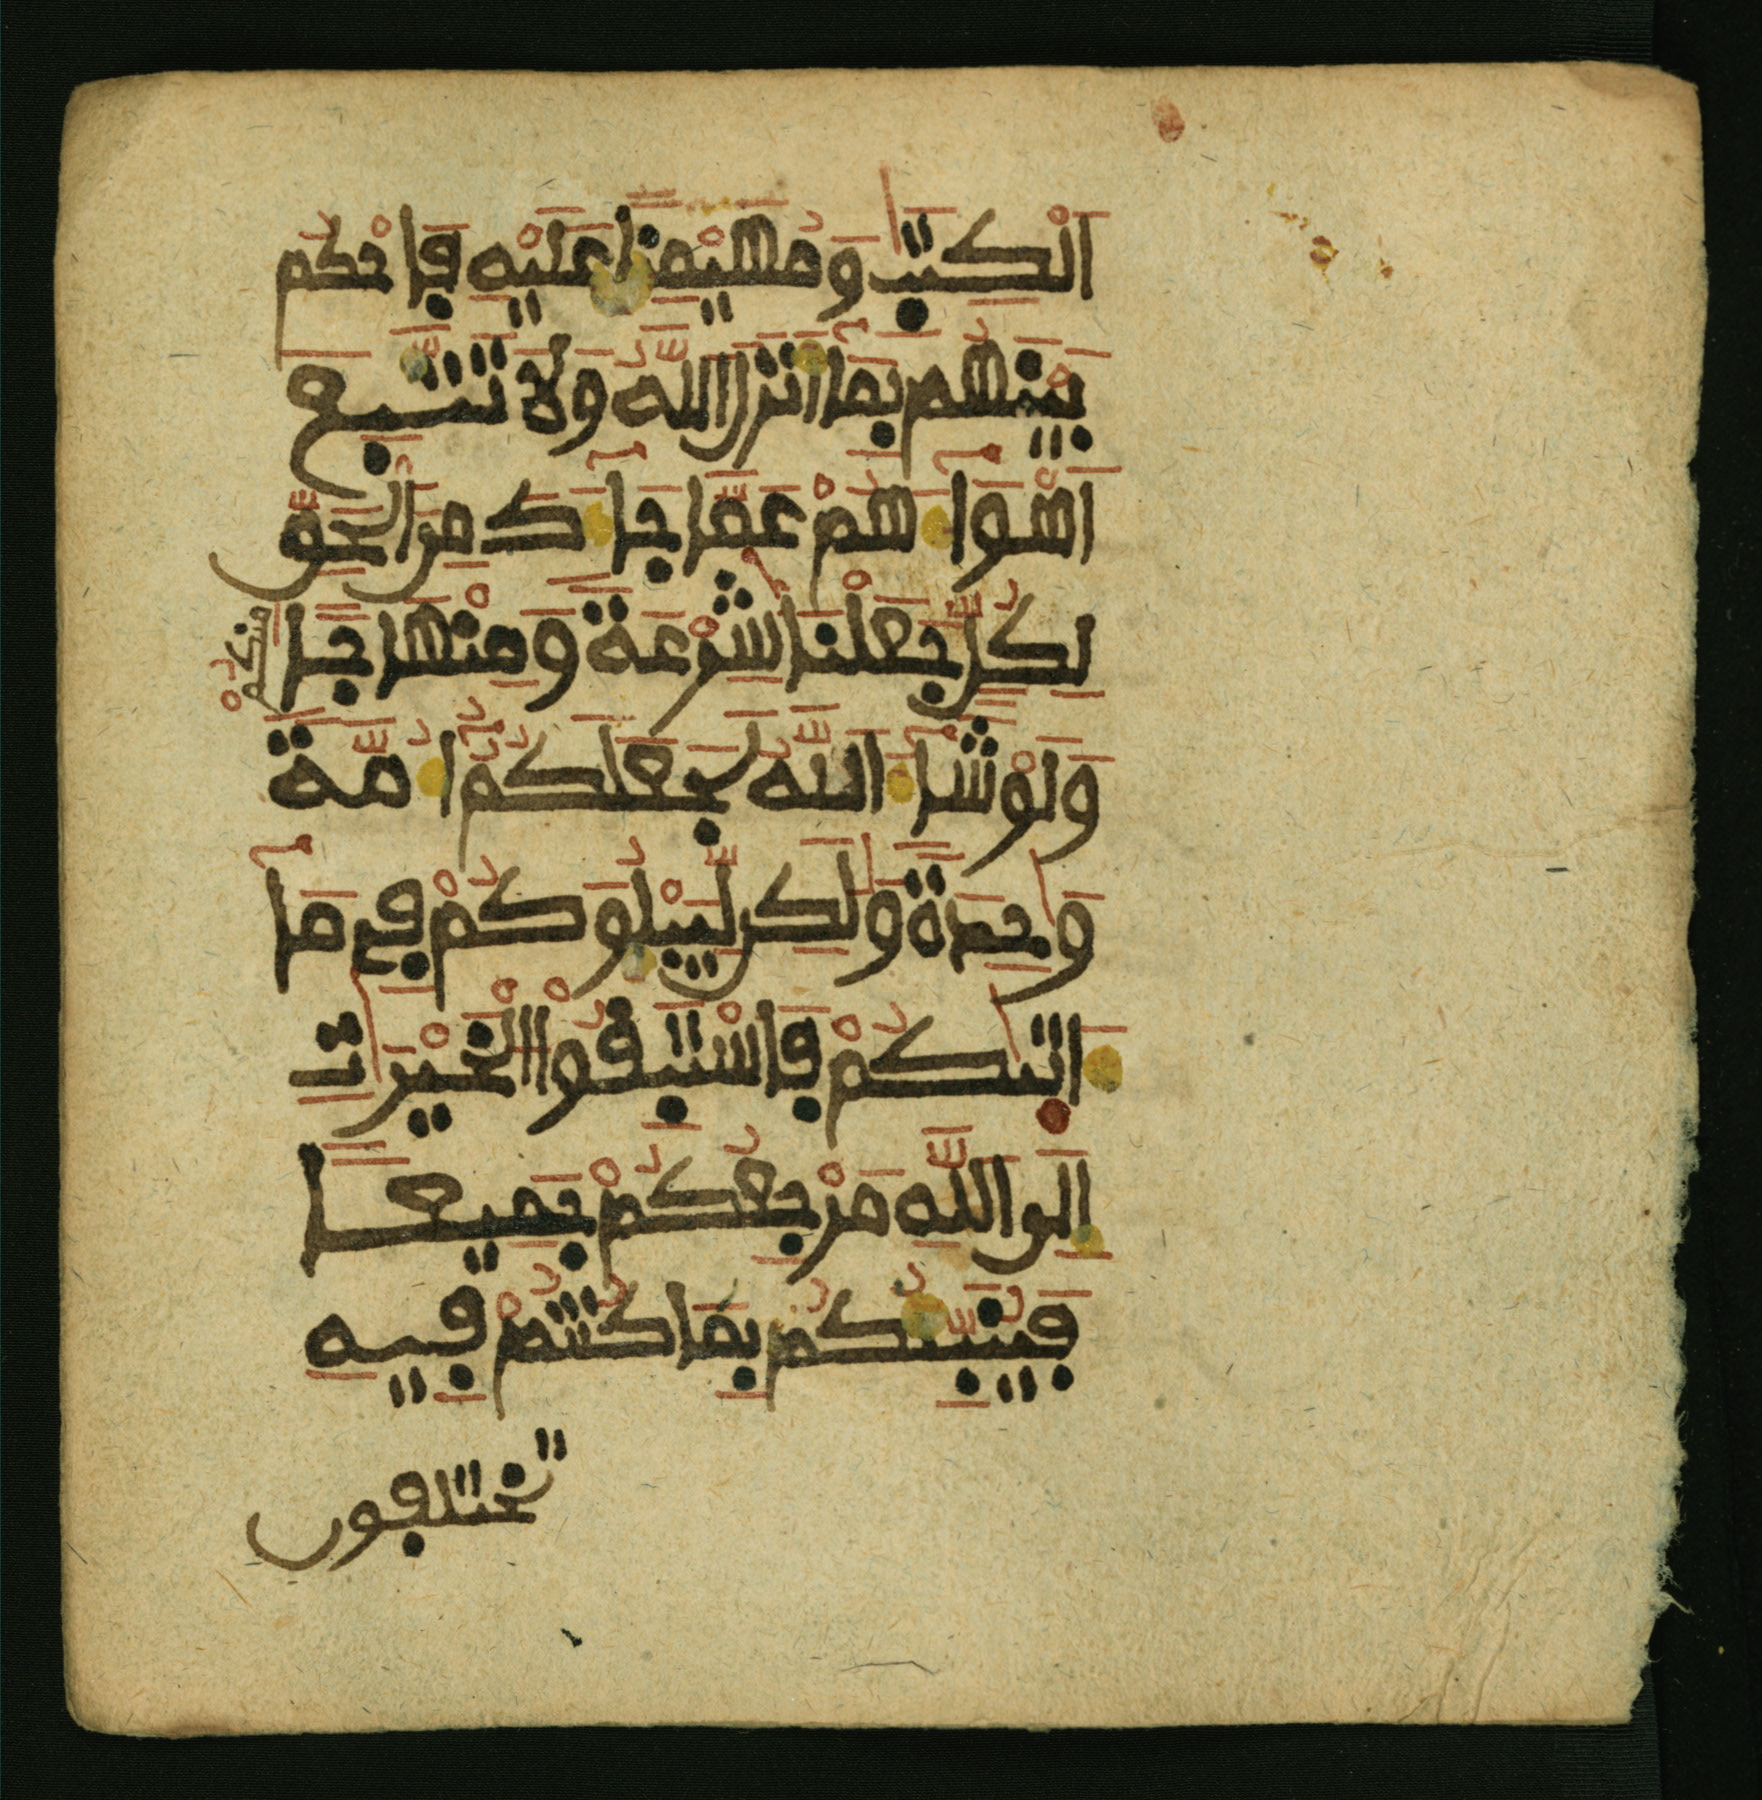 اَلْكِتَٰبِ وَمُهَيْمِناً عَلَيْهِ فَاحْكُم
بَيْنَهُم بِمَآ أَنزَلَ اللَّهُ وَلَا تَتَّبِعَ
اَهْوَآءَهُمْ عَمَّا جَآءَكَ مِنَ الْحَقِّ
لِكُلٍّ جَعَلْنَا شِرْعَةً وَمِنْهَاجاً
مِنكُمْ
وَلَوْ شَآءَ اَللَّهُ لَجَعَلَكُمُۥٓ أُمَّةً
وَٰحِدَةً وَلَٰكِن لِّيَبْلُوَكُمْ فِي مَآ
ءَاتَىٰكُمْ فَاسْتَبِقُوا الْخَيْرَٰتِ
إِلَى اللَّهِ مَرْجِعُكُمْ جَمِيعاً
فَيُنَبِّئُكُم بِمَا كُنتُمْ فِيهِ
تختلفون